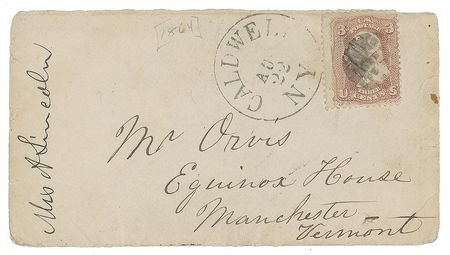 [1864]
CALDWELL
AU
22
NY
3 3
U THREE S
CENTS
Mrs A Lincoln
Mr Orvis
Equinox House
Manchester
Vermont